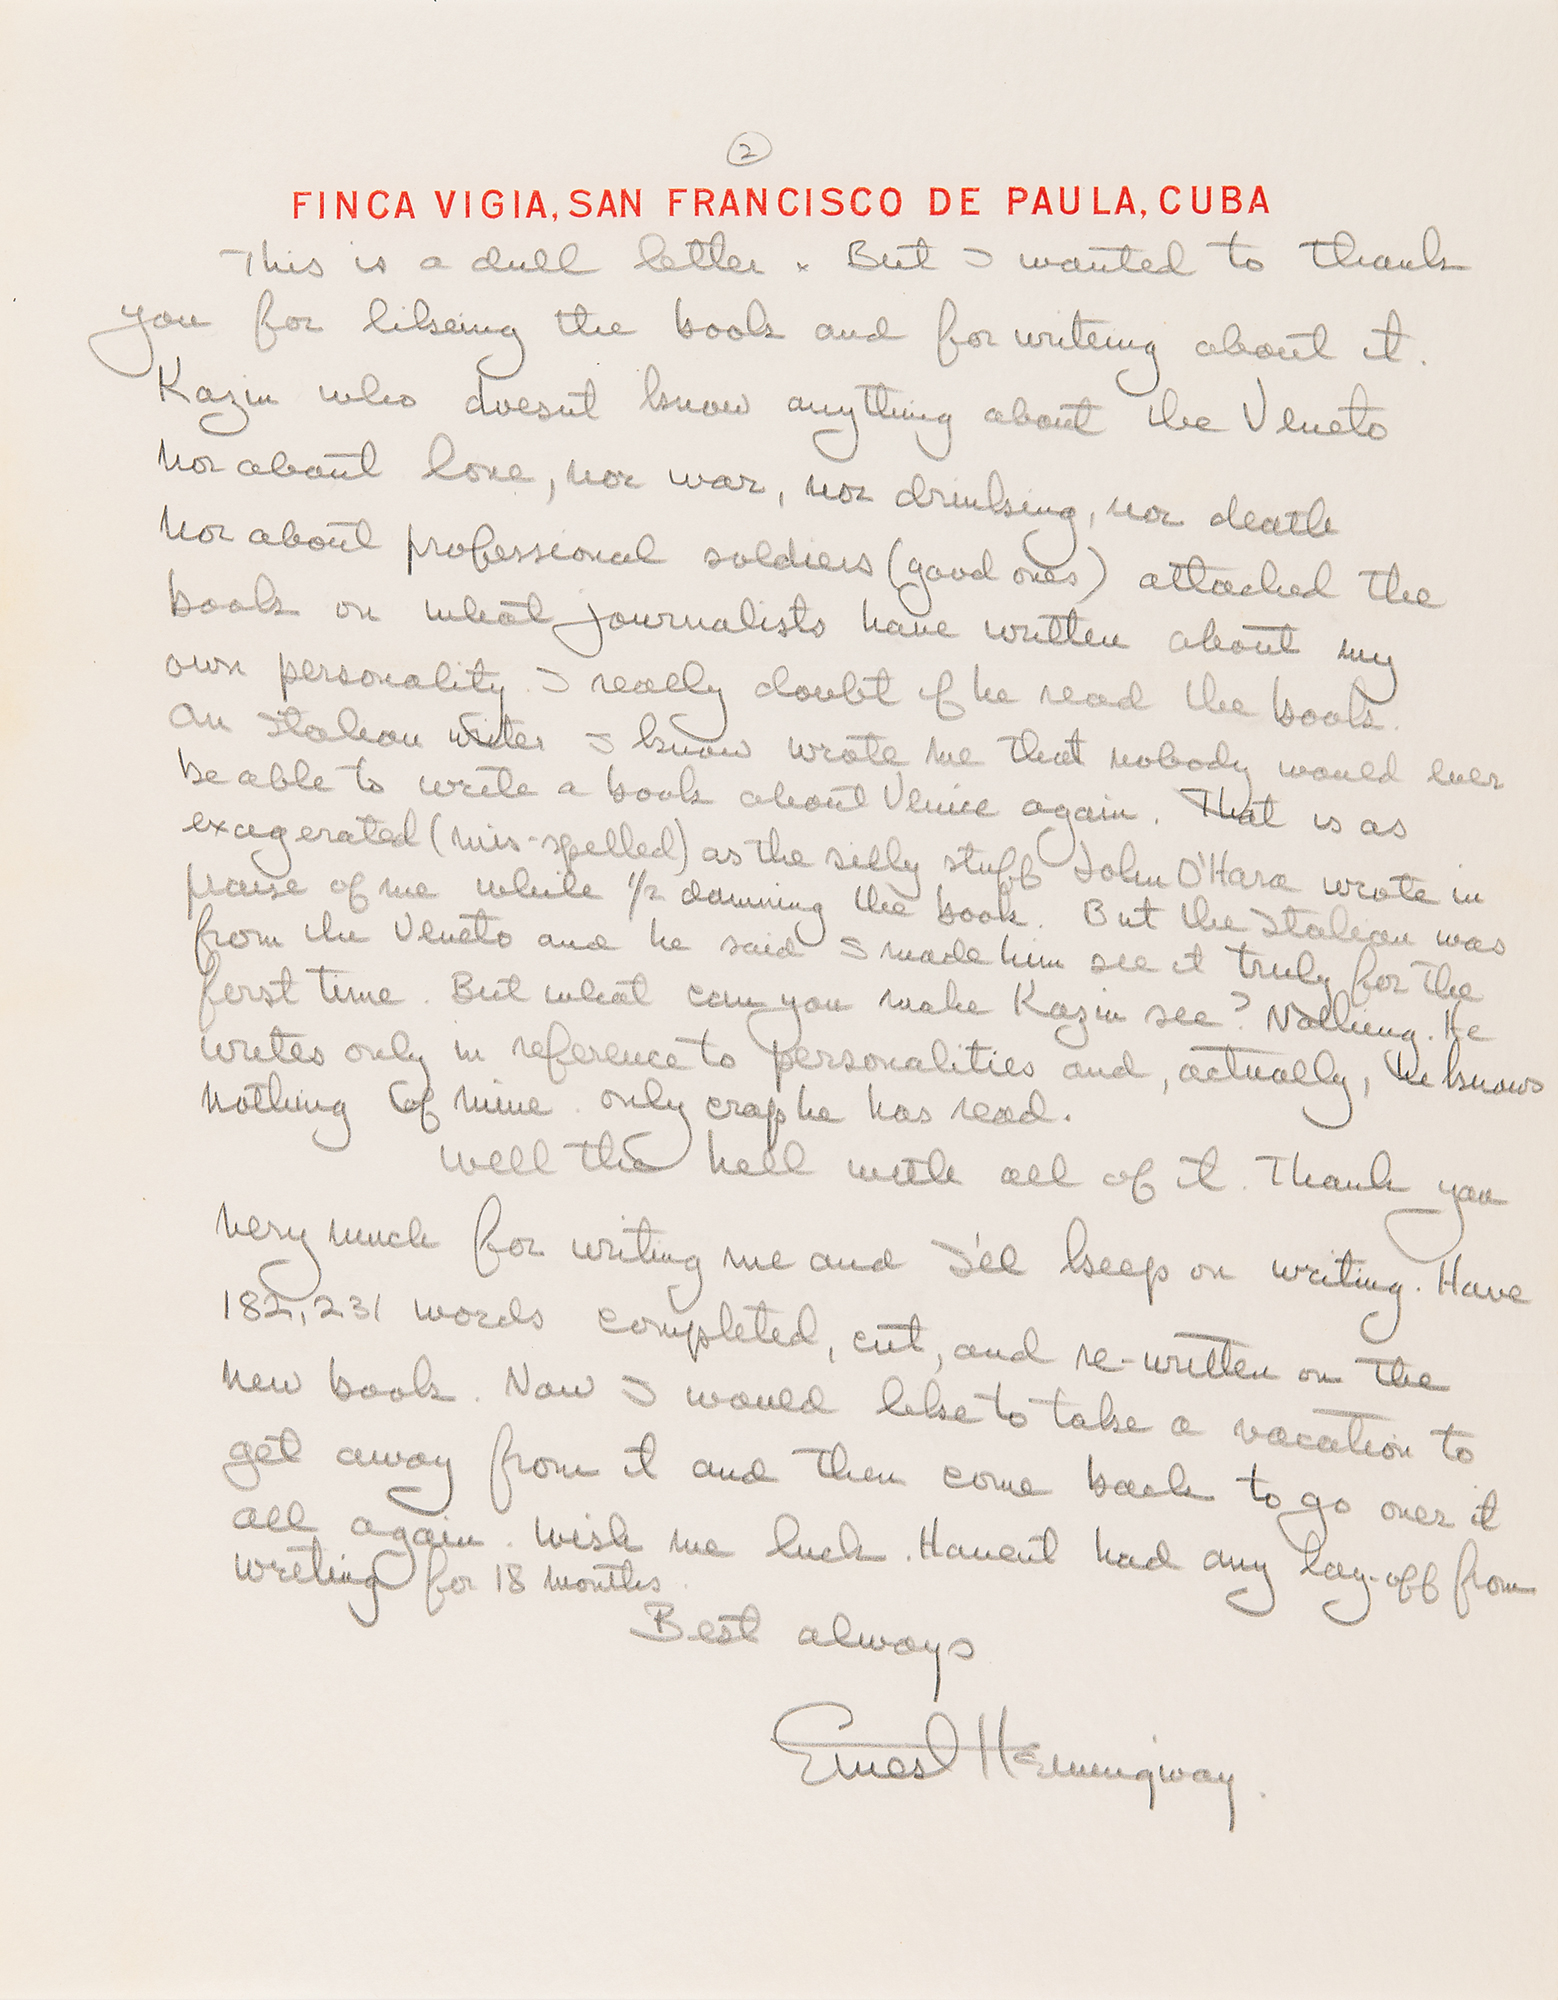 2
FINCA VIGIA, SAN FRANCISCO DE PAULA, CUBA
This is a dull letter. But I wanted to thank
you for likeing the book and for writeing about it.
Kazin who doesnt know anything about the Veneto
nor about love, nor war, nor drinking, nor death
nor about professional soldiers (good ones) attacked the
book on what journalists have written about my
own personality. I really doubt if he read the book.
An Italian writer I know wrote me that nobody would ever
be able to write a book about Venice again. That is as
exagerated (mis-spelled) as the silly stuff John O'Hara wrote in
praise of me while 1/2 damning the book. But the Italian was
from the Veneto and he said I made him see it truly for the
first time. But what can you make Kazin see? Nothing. He
writes only in reference to personalities and, actually, he knows
nothing of mine. only crap he has read.
Well the hell with all of it. Thank you
very much for writing me and I'll keep on writing. Have
182,231 words completed, cut, and re-written on the
new book. Now I would like to take a vacation to
get away from it and then come back to go over it
all again. Wish me luck. Havent had any lay-off from
writing for 18 months.
Best always
Ernest Hemingway.